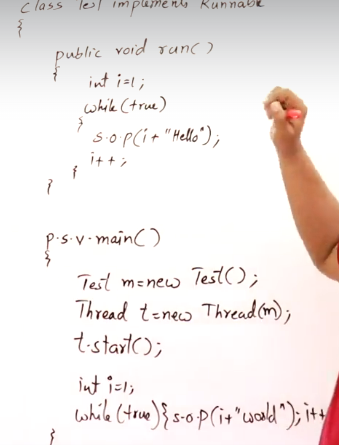 class Test implements Runnable
{
public void run()
{
int i=1;
while(true)
{
s.o.p(i+"Hello");
i++;
}
}
p.s.v.main()
{
Test m=new Test();
Thread t=new Thread(m);
t.start();
int i=1;
while(true){s.o.p(i+"world"); i++
}